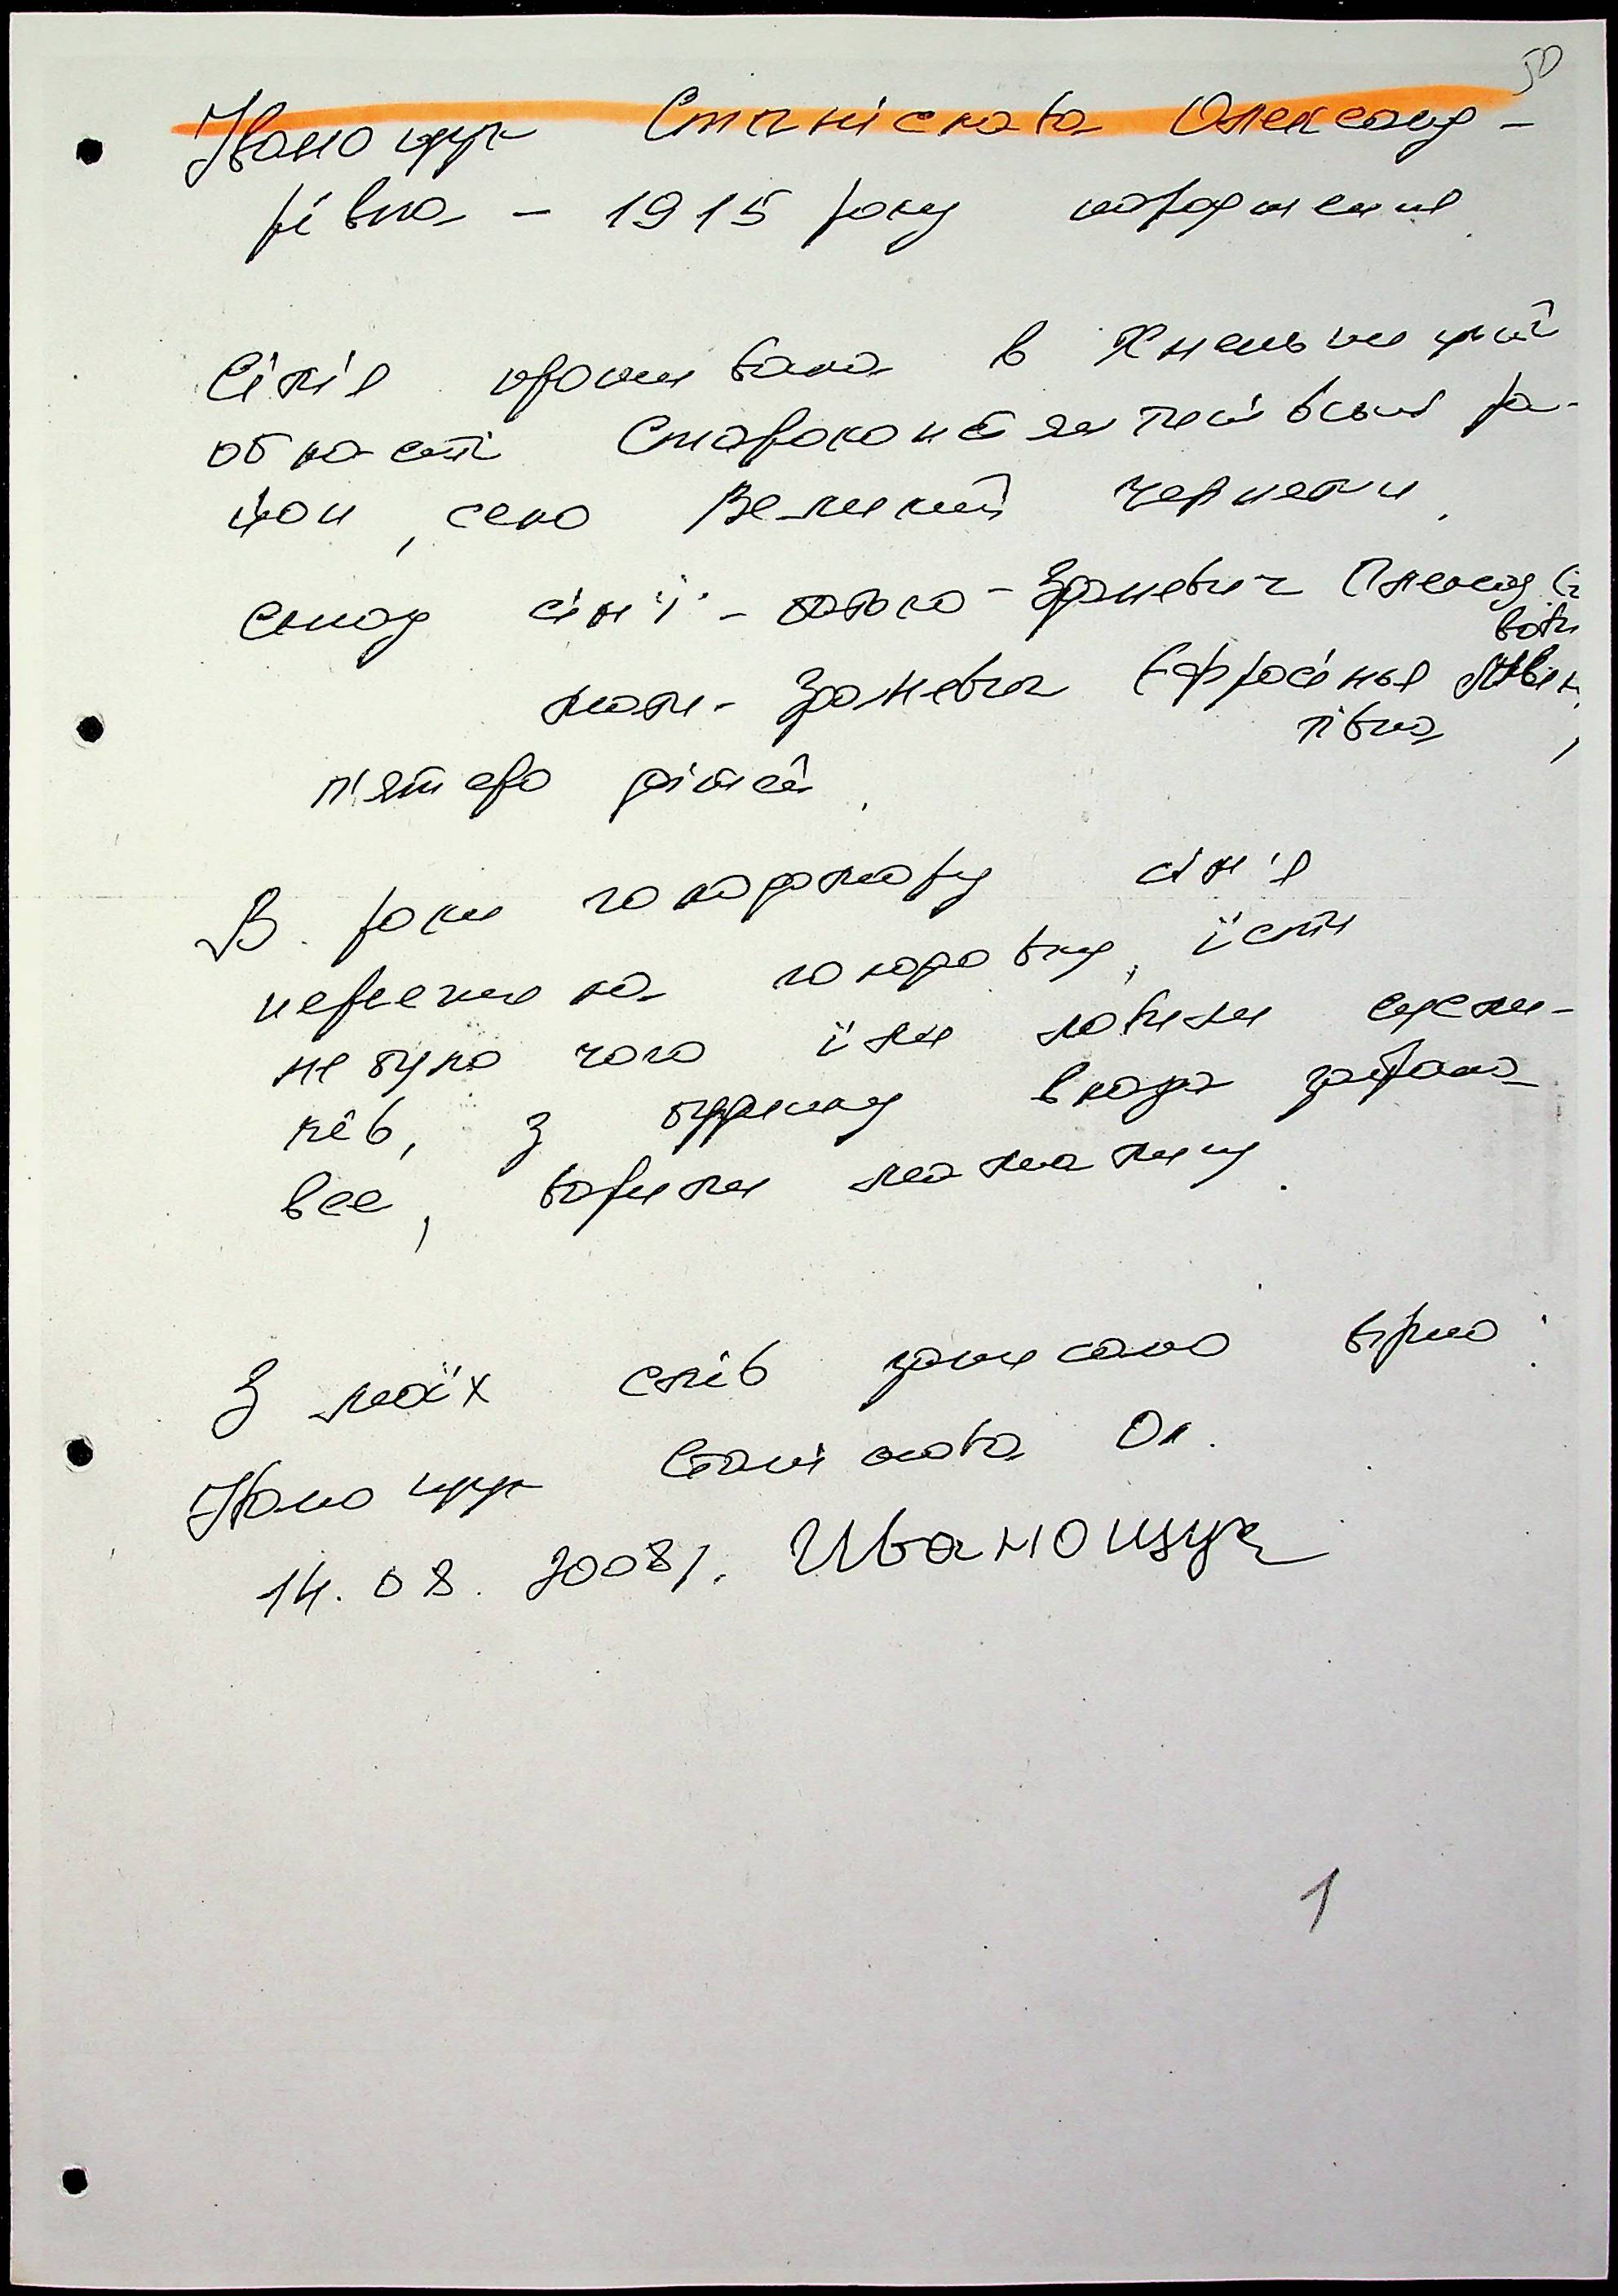 50
Іванощук Станіслава Олександ-
рівна - 1915 року народження.
Сім'я проживала в Хмельницькій
області Старокостянтинівський ра-
йон, село Великий Чернятин.
Склад сім'ї - батько - Зданевич
мати - Зданевич Єфросинья
п'ятеро дітей.
В роки голодомору сім'я
пережила голодовку, їсти
не було чого їли ловили
з будинку влада забрала
все, варили мамалигу.
З моїх слів записано вірно:
Іванощук Станіслава Ол.
14.08.2008р. Иванощук
1